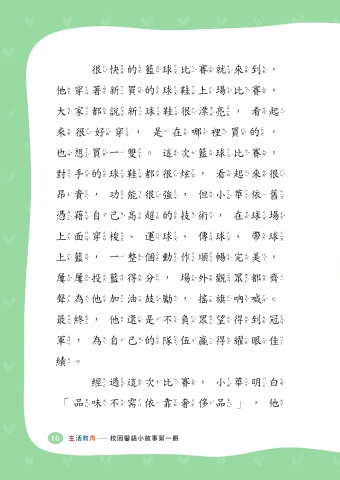 很快的籃球比賽就來到，
他穿著新買的球鞋上場比賽，
大家都說新球鞋很漂亮，看起
來很好穿，是在哪裡買的，
也想買一雙。這次籃球比賽，
對手的球鞋都很炫，看起來很
昂貴，功能很強，但小華依舊
憑藉自己高超的技術，在球場
上面穿梭、運球、傳球、帶球
上籃，一整個動作順暢完美，
屢屢投籃得分，場外觀眾都齊
聲為他加油鼓勵，搖旗吶喊。
最終，他還是不負眾望得到冠
軍，為自己的隊伍贏得耀眼佳
績。
經過這次比賽，小華明白
「品味不需依靠奢侈品」，他
16 生活教育——校園警語小故事第一冊